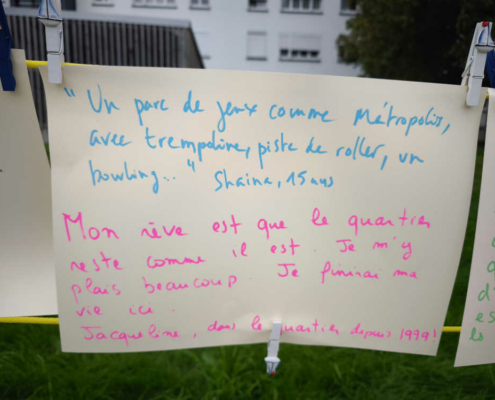 " Un parc de jeux comme Métropolis,
avec trempoline, piste de roller, un
bowling.. " Shaina, 15 ans
Mon rêve est que le quartier
reste comme il est. Je m'y
plais beaucoup. Je finirai ma
vie ici.
Jacqueline, dans le quartier depuis 1999!
d'
es